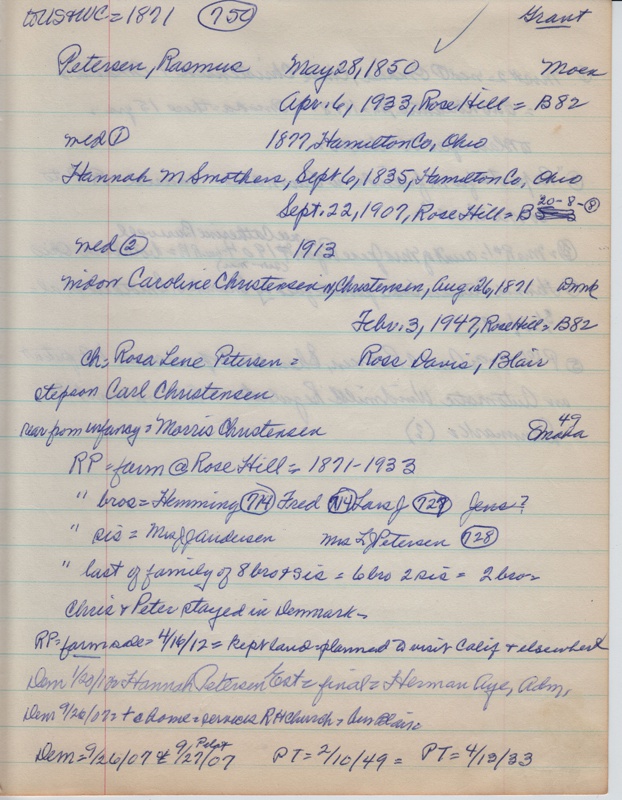 to US & WC = 1871 (750) Grant
Petersen, Rasmus May 28, 1850 Moen
Apr. 6, 1933, Rose Hill = B82
med ① 1877, Hamilton Co, Ohio
Hannah M Smothers, Sept 6, 1835, Hamilton Co, Ohio
Sept. 22, 1907, Rose Hill = B 20-8-⑧
med ② 1913
Caroline Christensen Christensen, Aug. 26, 1871 Dmk
Febr. 3, 1947, Rose Hill = B82
ch = Rosa Lene Petersen = Ross Davis, Blair
stepson Carl Christensen
rear from infancy = Morris Christensen 49 Omaha
RP = farm @ Rose Hill = 1871-1933
" bros = Hemming (714) Fred (714) Lars J (727) Jens?
" sis = Mrs J J Andersen Mrs L Petersen (728)
" last of family of 8 bro & sis = 6 bro 2 sis = 2 bro =
Chris & Peter stayed in Denmark =
RP = farm sale = 4/16/12 = kept land = planned to visit Calif & elsewhere
Dem Hannah Petersen Est = final = Herman Aye, Adm.
Dem 9/26/07 = + @ home = services RH Church =
Dem = 9/26/07 & 9/27/07 PT = 2/10/49 = PT = 4/13/33